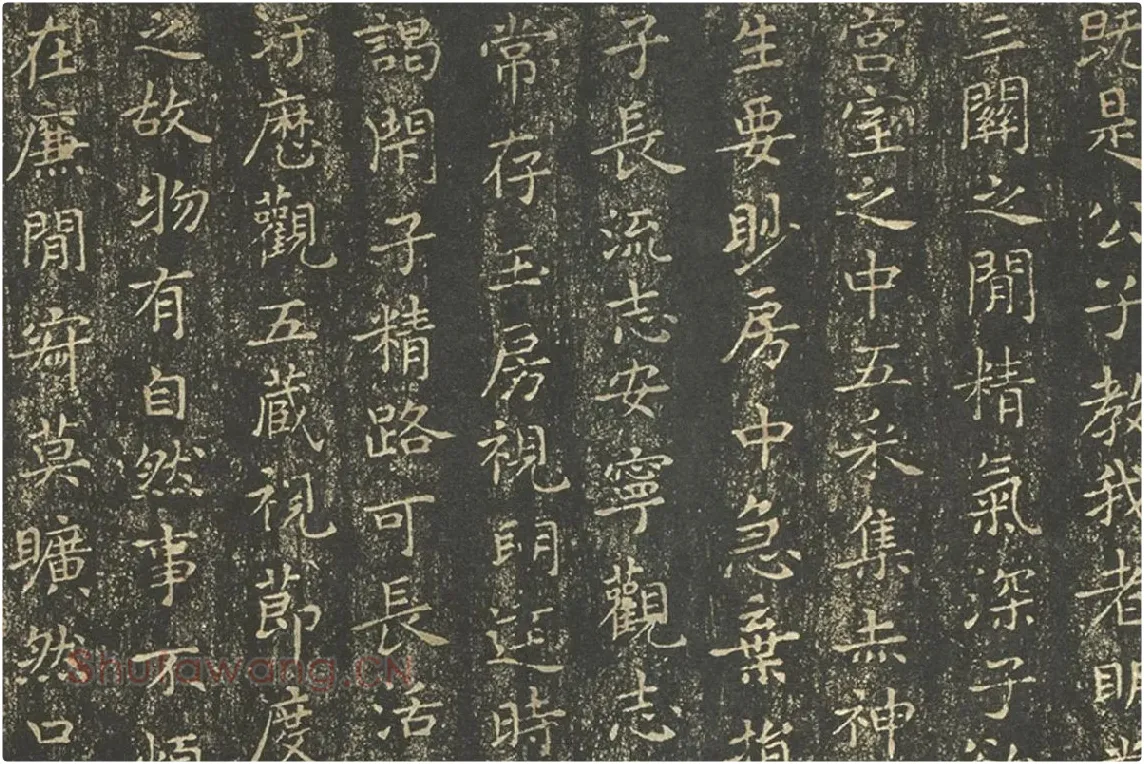 既是公子教我者明
三關之間精氣深子
宫室之中五采集赤神
生要眇房中急棄
子長流志安寧觀志
常存玉房視明达時
謁子精路可長活
汙歷觀五藏視節度
之故物有自然事不
在廉間寂莫曠然口
Shufawang.CN